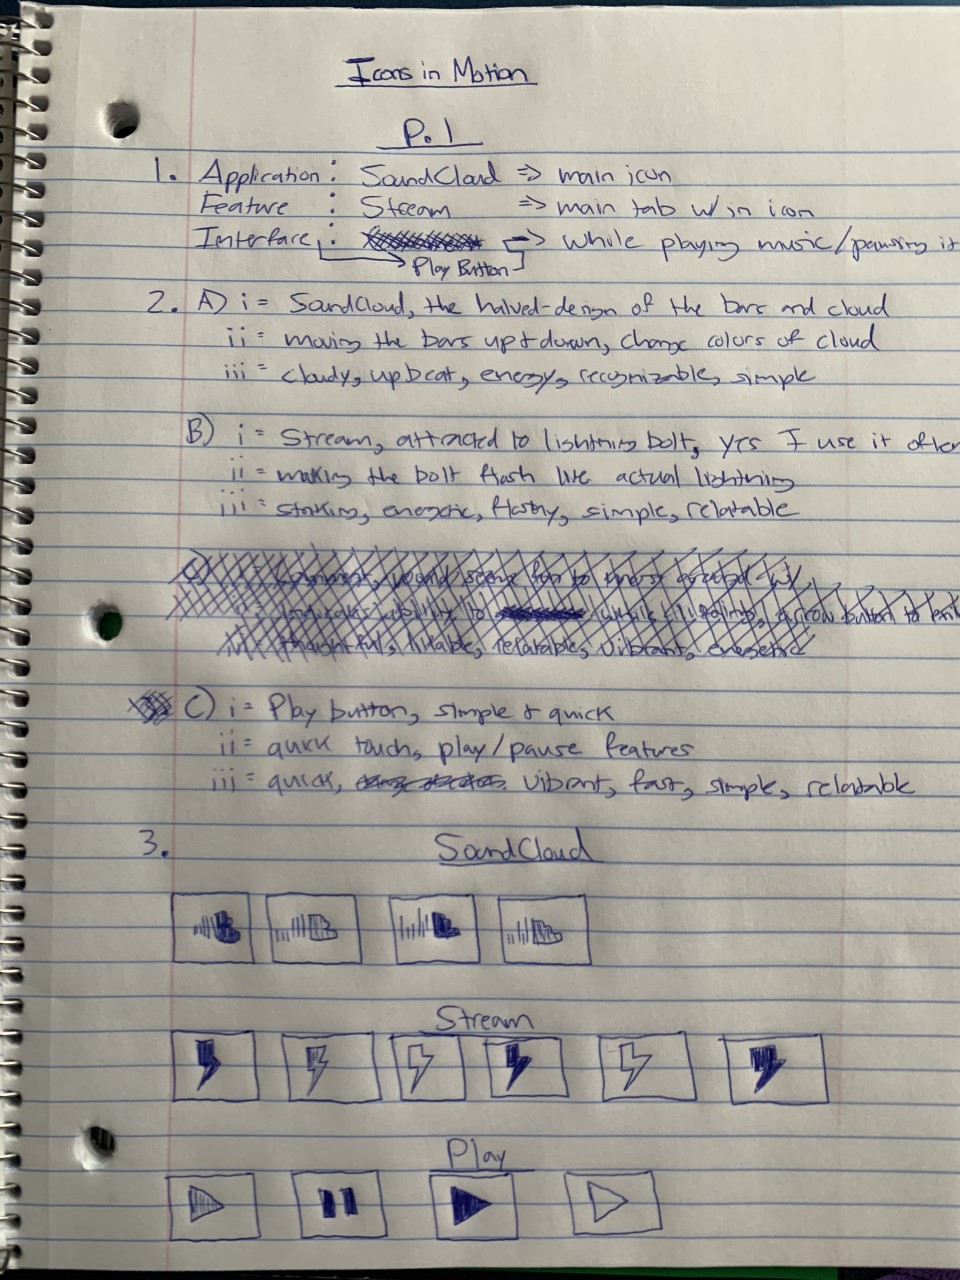 Icons in Motion
P. 1
1. Application : SoundCloud => main icon
Feature : Stream => main tab w/in icon
Interface : => while playing music/pausing it
Play Button
2. A) i = SoundCloud, the halved-design of the bars and cloud
ii = moving the bars up & down, change colors of cloud
iii = cloudy, upbeat, energy, recognizable, simple
B) i = Stream, attracted to lightning bolt, yes I use it often
ii = making the bolt flash like actual lightning
iii = striking, energetic, flashy, simple, relatable
thoughtful, likable, relatable, vibrant, energetic
C) i = Play button, simple & quick
ii = quick touch, play/pause features
iii = quick, vibrant, fast, simple, relatable
3. SoundCloud
Stream
Play